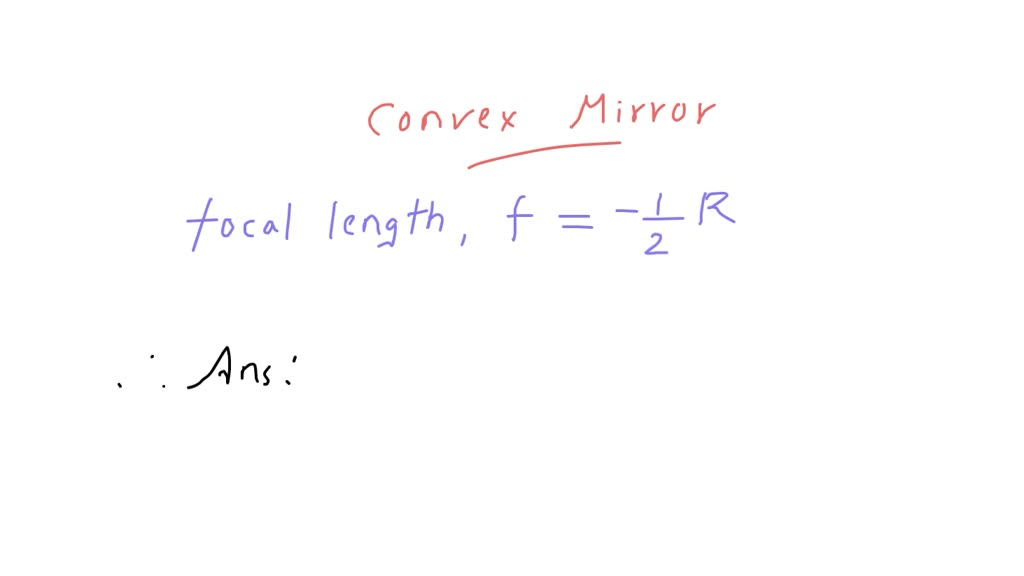 Convex Mirror
focal length, f = -1/2 R
∴ Ans: